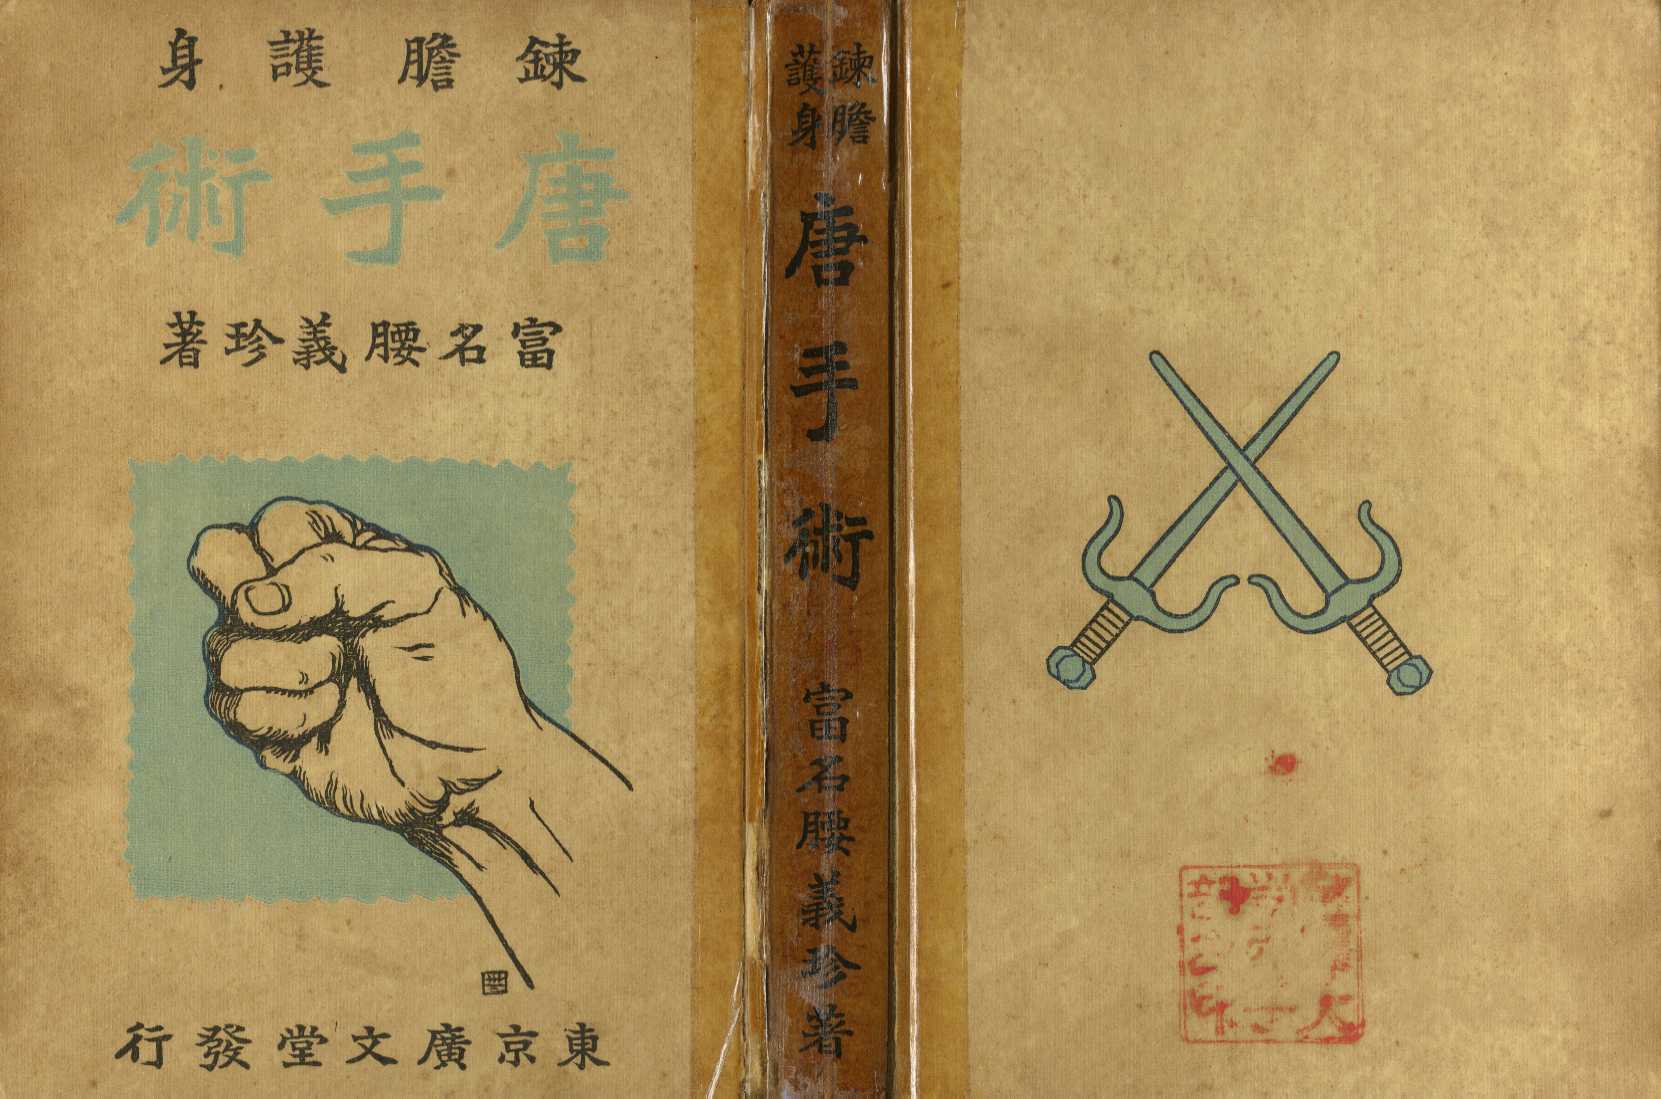 錬膽護身
唐手術
富名腰義珍著
東京廣文堂發行
錬膽
護身
唐手術
富名腰義珍著